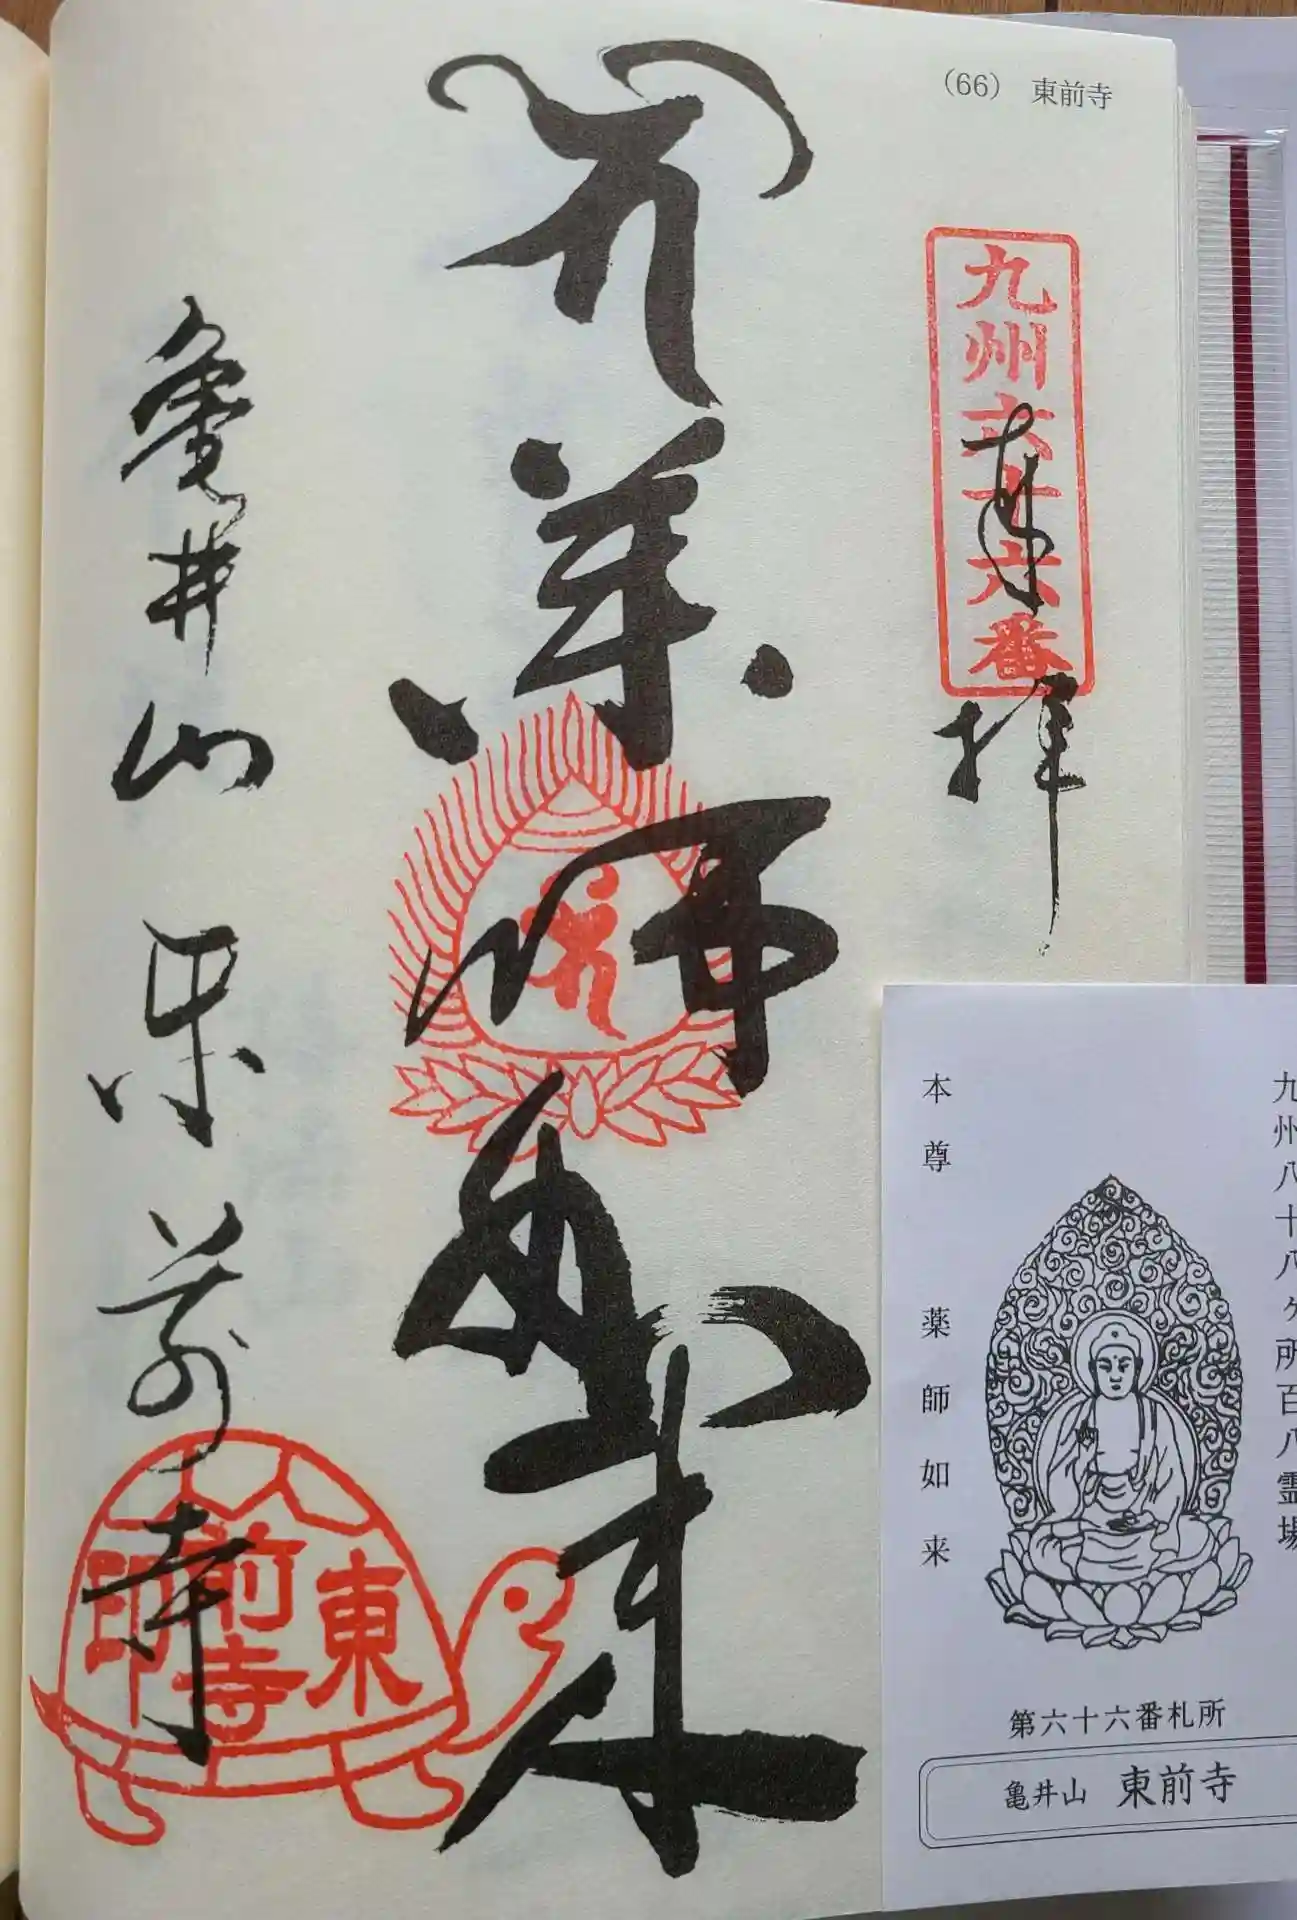 (66) 東前寺
九州六十六番
奉拝
薬師如来
亀井山 東前寺
東前寺印
九州八十八ヶ所百八霊場
本尊 薬師如来
第六十六番札所
亀井山 東前寺